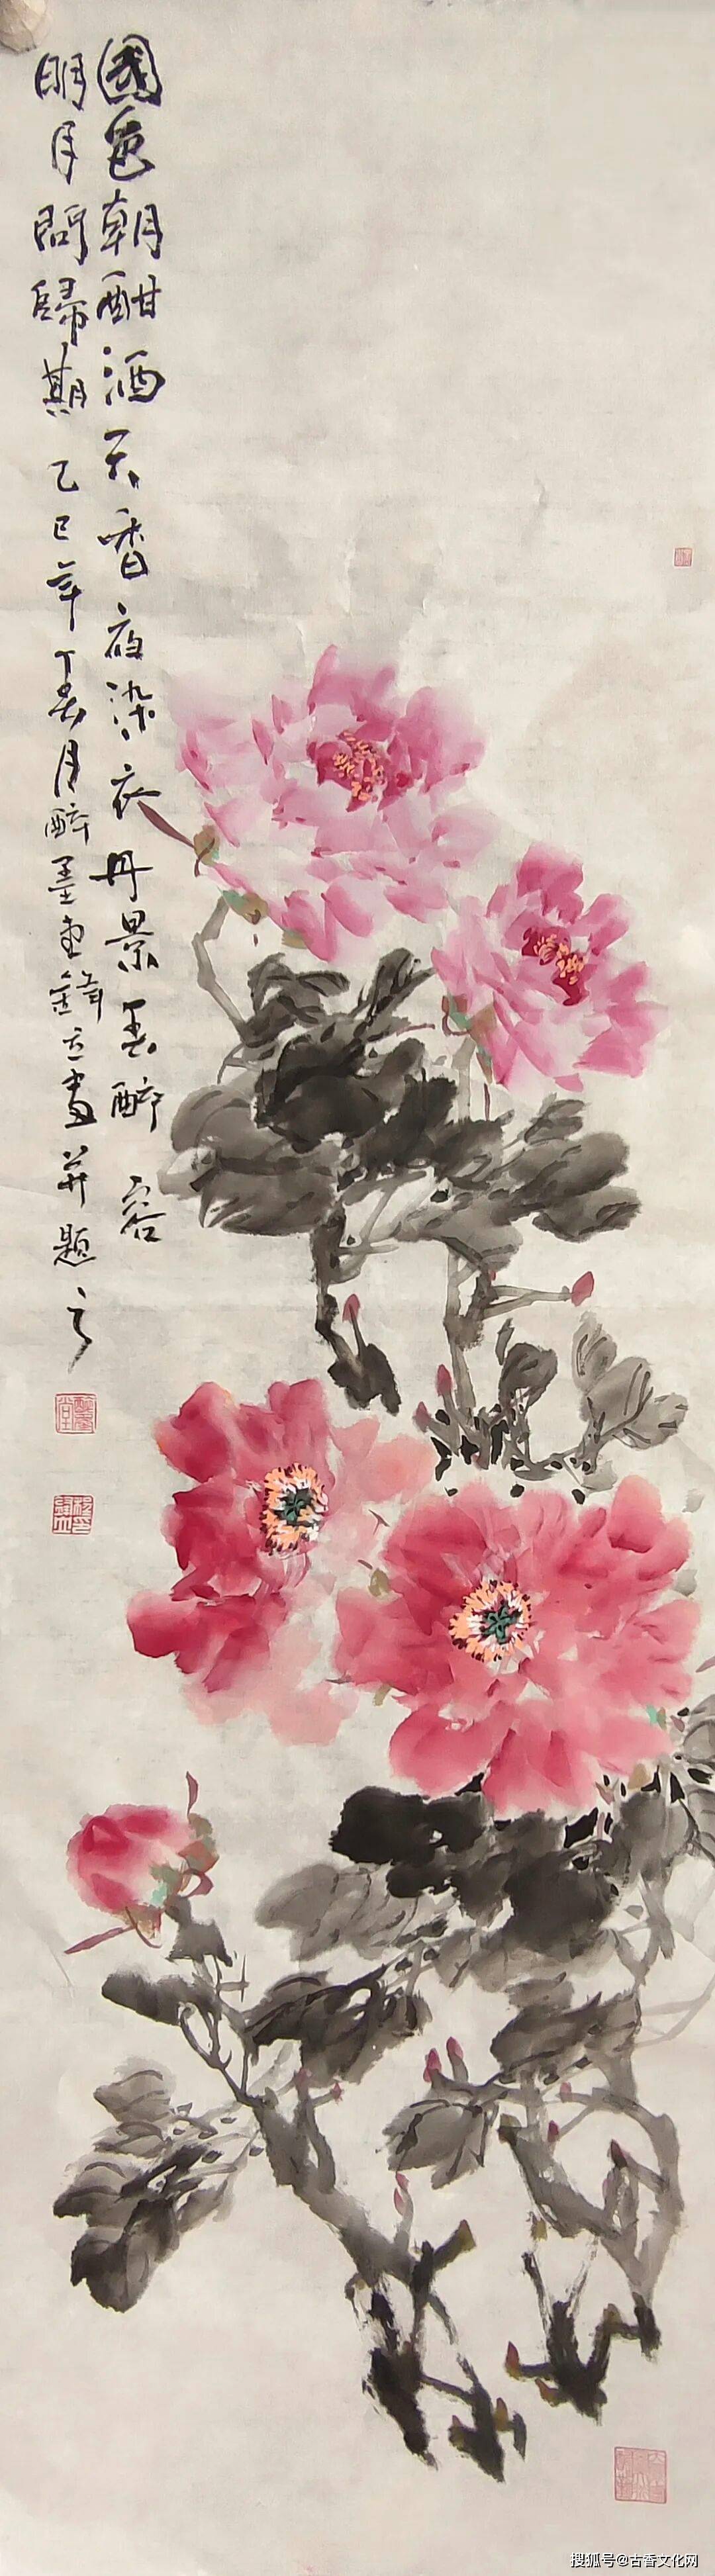 國色朝酣酒天香夜染衣丹景春醉容
明月問歸期 乙巳年丁春月醉墨堂畫并題之
醉墨堂
搜狐号@古香文化网